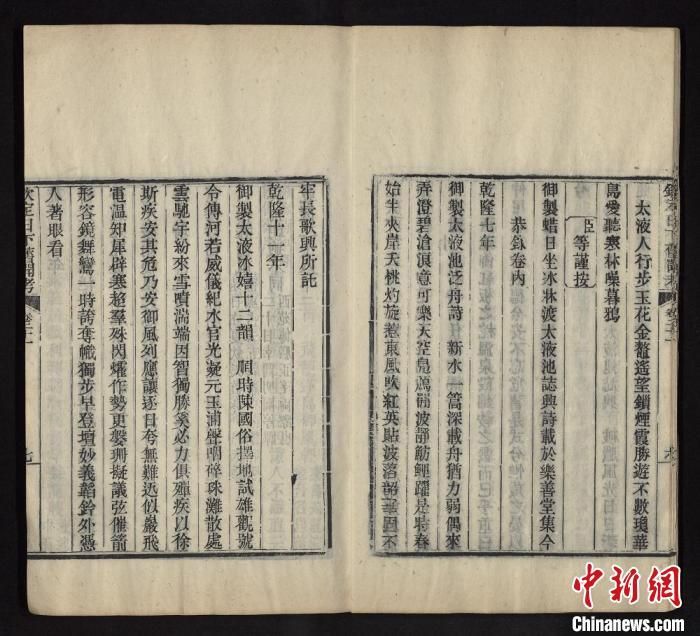 太液人行步玉花金鰲遙望鎖煙霞勝遊不數瓊華
島愛聽寒林噪暮鴉
臣等謹按
御製蜡日坐冰牀渡太液池誌興詩載於樂善堂集今
恭錄卷內
乾隆七年
御製太液池泛舟詩 新水一篙深載舟猶力弱偶來
弄澄碧滄浪意可樂天空鳥 波靜魴鯉躍是時春
始半夾岸夭桃灼旋惹東風吹紅英點波落韶華固不
牢長歌興所託
乾隆十一年
御製太液冰嬉十二韻 順時陳國俗擇地試雄觀號
令傳河若威儀紀水官光凝元玉浦聲 碎珠灘散處
雲馳宇紛來雪噴湍端因智獨勝奚必力俱殫疾以徐
斯疾安其危乃安御風列應讓逐日夸無難迅似巖飛
電溫知犀辟寒趫羣殊閃爚作勢更槃珊擬議弦催箭
形容鏡舞鸞一時誇奪幟獨步早登壇妙義韜鈐外憑
人著眼看
欽定日下舊聞考 卷二十一 七
中新网
Chinanews.com